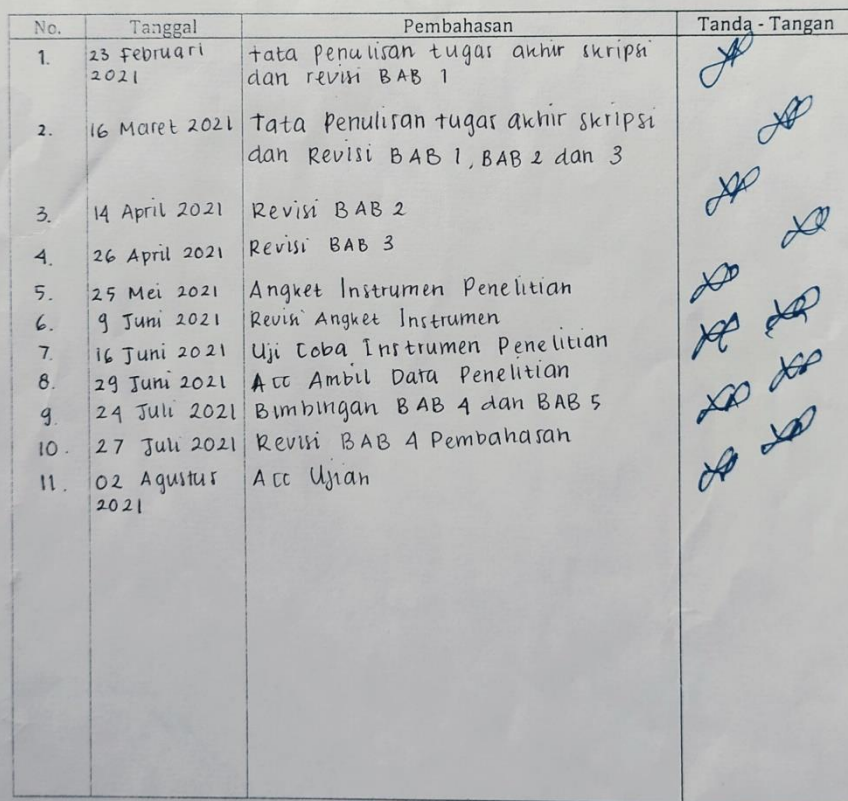 No. Tanggal Pembahasan Tanda - Tangan
1. 23 Februari tata penulisan tugas akhir skripsi
2021 dan revisi BAB 1
2. 16 Maret 2021 Tata Penulisan tugas akhir skripsi
dan Revisi BAB 1, BAB 2 dan 3
3. 14 April 2021 Revisi BAB 2
4. 26 April 2021 Revisi BAB 3
5. 25 Mei 2021 Angket Instrumen Penelitian
6. 9 Juni 2021 Revisi Angket Instrumen
7. 16 Juni 2021 Uji Coba Instrumen Penelitian
8. 29 Juni 2021 Acc Ambil Data Penelitian
9. 24 Juli 2021 Bimbingan BAB 4 dan BAB 5
10. 27 Juli 2021 Revisi BAB 4 Pembahasan
11. 02 Agustus Acc Ujian
2021